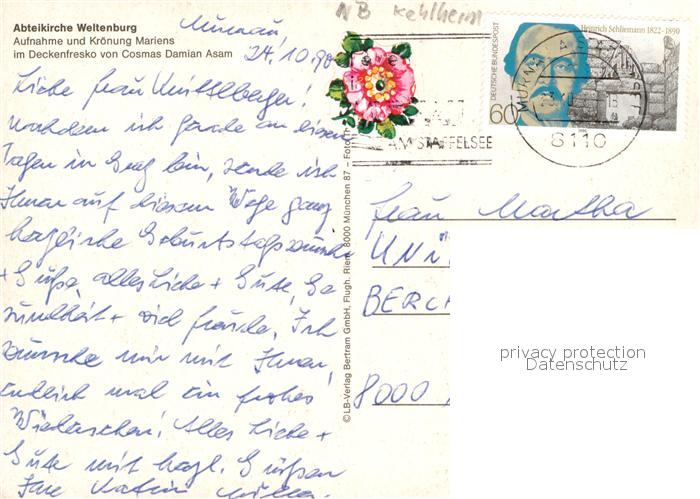 NB Kehlheim
Abteikirche Weltenburg
Aufnahme und Krönung Mariens
im Deckenfresko von Cosmas Damian Asam
Murnau,
24.10.90
Liebe Frau
Nachdem ich gerade an diesen
Tagen in bin, sende ich
Ihnen auf diesem Wege ganz
herzliche Geburtstagswünsche
+ Grüße, alles Liebe + Gute, Ge
sundheit + viel Freude. Ich
wünsche mir mit Ihnen,
endlich mal ein frohes
Wiedersehen! Alles Liebe +
Gute mit herzl. Grüßen
Ihre
© LB-Verlag Bertram GmbH, Flugh. Riem, 8000 München 87 – Foto:
DEUTSCHE BUNDESPOST
Heinrich Schliemann 1822-1890
60
MURNAU A STAFFELSEE
8110
AM STAFFELSEE
Frau Martha
UNN
BERCH
8000
privacy protection
Datenschutz